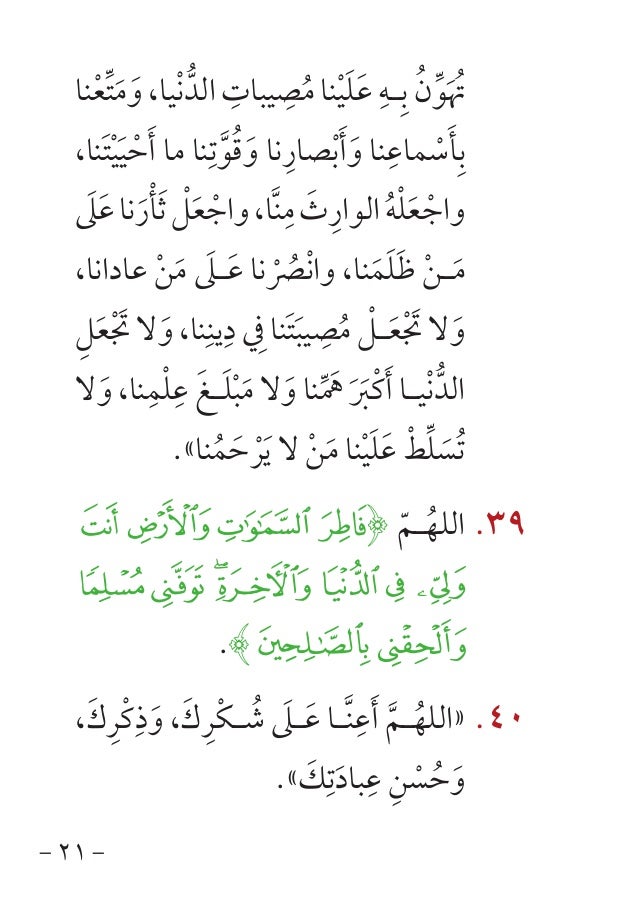 تُهَوِّنُ بِـهِ عَلَيْنا مُصِيباتِ الدُّنْيا، وَمَتِّعْنا
بِأَسْماعِنا وَأَبْصارِنا وَقُوَّتِنا ما أَحْيَيْتَنا،
واجْعَلْهُ الوارِثَ مِنَّا، واجْعَلْ ثَأْرَنا عَلَى
مَـنْ ظَلَمَنا، وانْصُرْنا عَـلَى مَنْ عادانا،
وَلا تَجْعَـلْ مُصِيبَتَنا فِي دِينِنا، وَلا تَجْعَلِ
الدُّنْيـا أَكْبَرَ هَمِّنا وَلا مَبْلَـغَ عِلْمِنا، وَلا
تُسَلِّطْ عَلَيْنا مَنْ لا يَرْحَمُنا».
٣٩. اللهُـمّ ﴿فَاطِرَ ٱلسَّمَٰوَٰتِ وَٱلْأَرْضِ أَنتَ
وَلِيِّۦ فِى ٱلدُّنْيَا وَٱلْآخِرَةِ ۖ تَوَفَّنِى مُسْلِمًا
وَأَلْحِقْنِى بِٱلصَّٰلِحِينَ ﴾.
٤٠. «اللهُـمَّ أَعِنَّـا عَـلَى شُـكْرِكَ، وَذِكْرِكَ،
وَحُسْنِ عِبادَتِكَ».
- ٢١ -